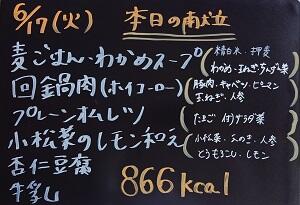 6/17(火) 本日の献立
麦ごはん・わかめスープ(精白米・押麦
わかめ・玉ねぎ・チンゲン菜
回鍋肉(ホイコーロー)(豚肉・キャベツ・ピーマン
玉ねぎ・人参
プレーンオムレツ(たまご 付)サラダ菜
小松菜のレモン和え(小松菜・えのき・人参
とうもろこし・レモン
杏仁豆腐
牛乳 866kcal